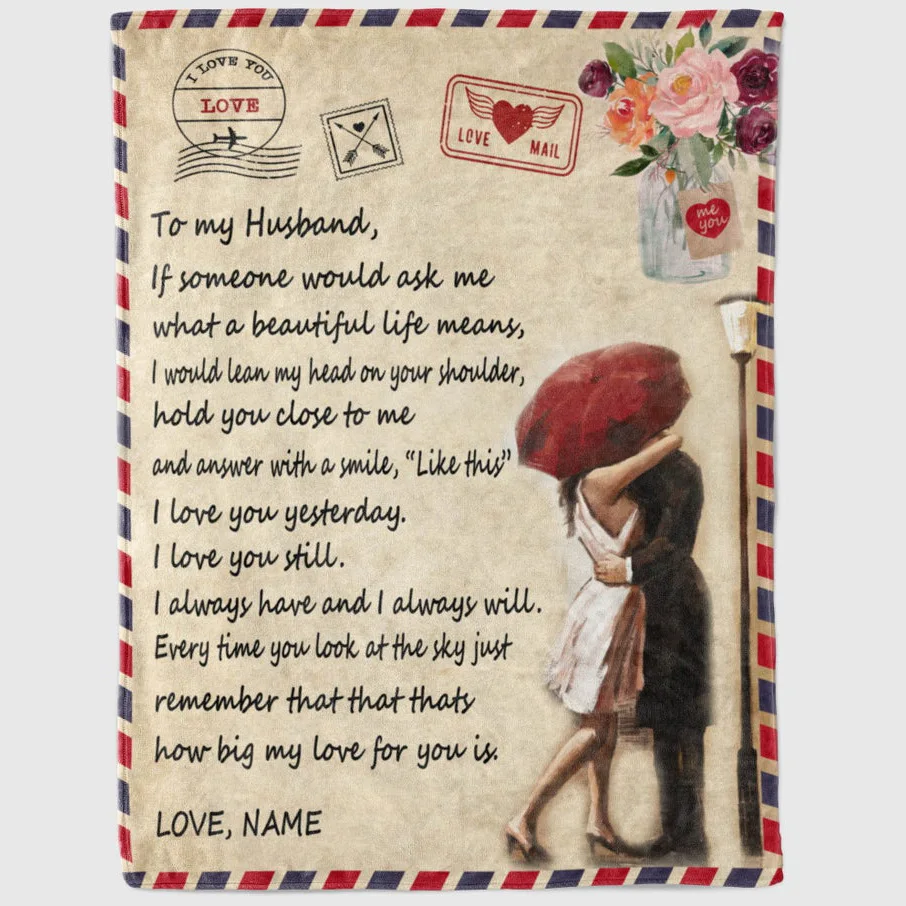 I LOVE YOU
LOVE
LOVE MAIL
me
you
To my Husband,
If someone would ask me
what a beautiful life means,
I would lean my head on your shoulder,
hold you close to me
and answer with a smile, “Like this”
I love you yesterday.
I love you still.
I always have and I always will.
Every time you look at the sky just
remember that that thats
how big my love for you is.
LOVE, NAME